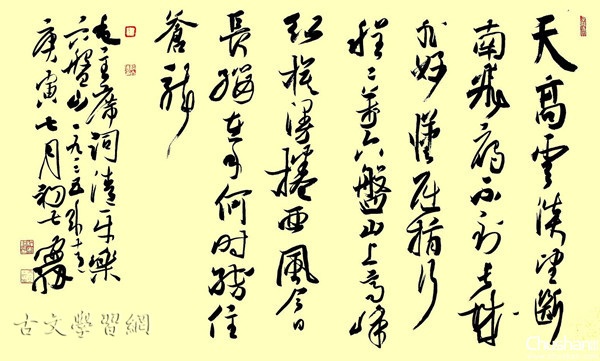 天高雲淡望斷
南飛雁不到長城
非好漢屈指行
程二萬六盤山上高峰
紅旗漫捲西風今日
長纓在手何時縛住
蒼龍
毛主席詞清平樂
六盤山一九三五年十月
庚寅七月初七
古文學習網